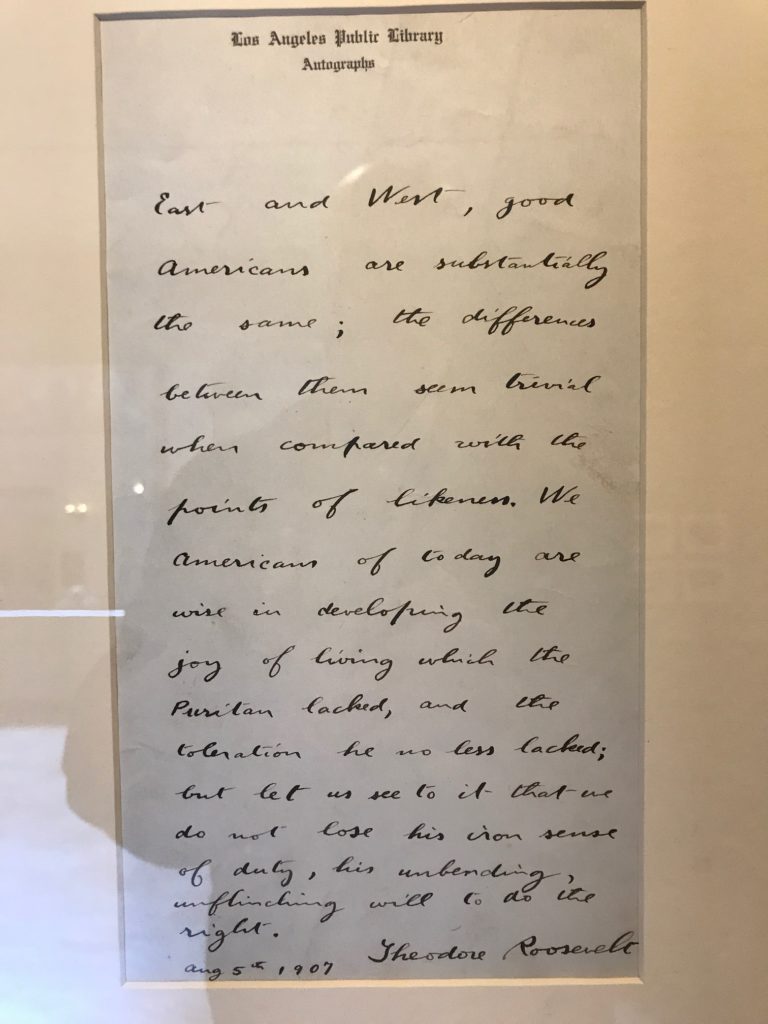 Los Angeles Public Library
Autographs
East and West, good
Americans are substantially
the same; the differences
between them seem trivial
when compared with the
points of likeness. We
Americans of today are
wise in developing the
joy of living which the
Puritan lacked, and the
toleration he no less lacked;
but let us see to it that we
do not lose his iron sense
of duty, his unbending,
unflinching will to do the
right.
Aug 5th 1907 Theodore Roosevelt